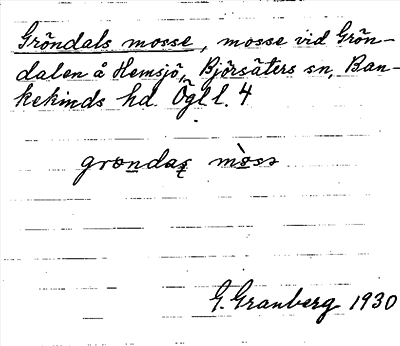 Gröndals mosse, mosse vid Grön-
dalen å Hemsjö, Björsäters sn, Ban-
kekinds hd. Ögl. l. 4
grondas mòss
G. Granberg 1930